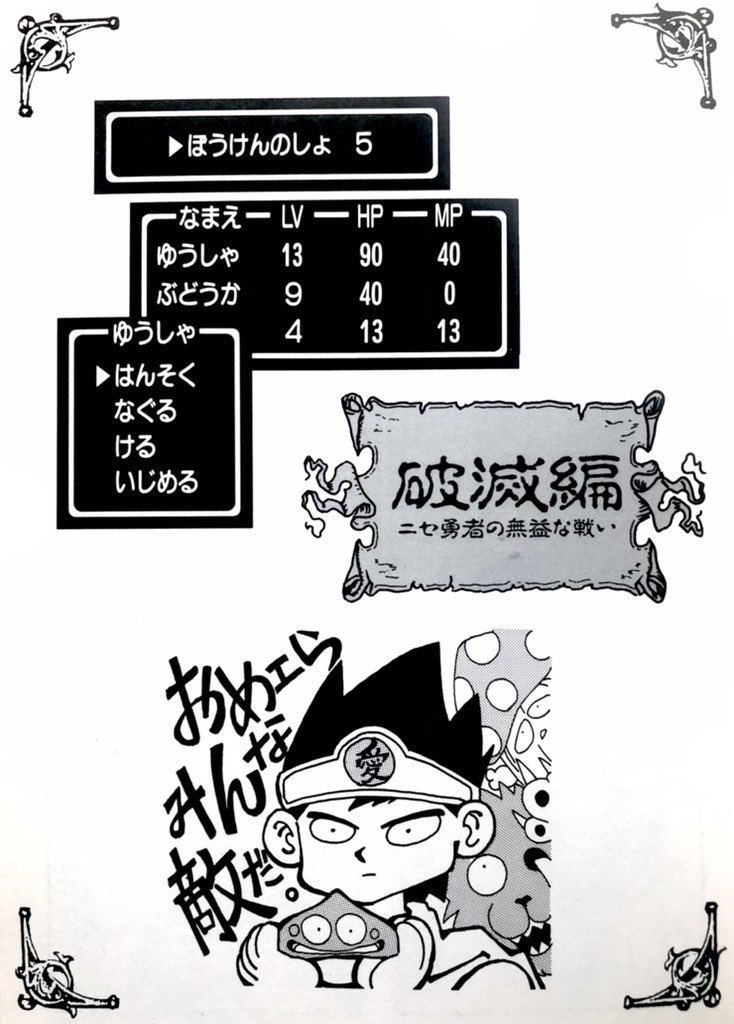 ▶ぼうけんのしょ 5
なまえ LV HP MP
ゆうしゃ 13 90 40
ぶどうか 9 40 0
4 13 13
ゆうしゃ
▶はんそく
なぐる
ける
いじめる
破滅編
ニセ勇者の無益な戦い
おめェら
みんな
敵だ。
愛